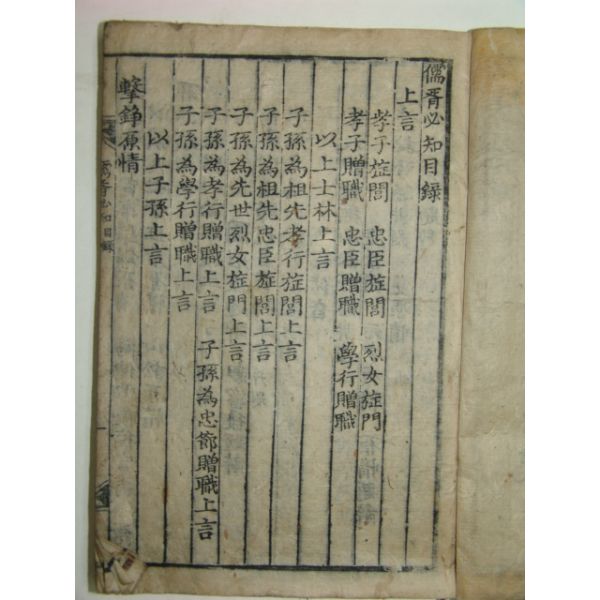 儒胥必知目錄
上言
孝子㫌閭 忠臣㫌閭 烈女㫌門
孝子贈職 忠臣贈職 學行贈職
以上士林上言
子孫為祖先孝行㫌閭上言
子孫為祖先忠臣㫌閭上言
子孫為先世烈女㫌門上言
子孫為孝行贈職上言 子孫為忠節贈職上言
子孫為學行贈職上言
以上子孫上言
擊錚原情
儒胥必知目錄